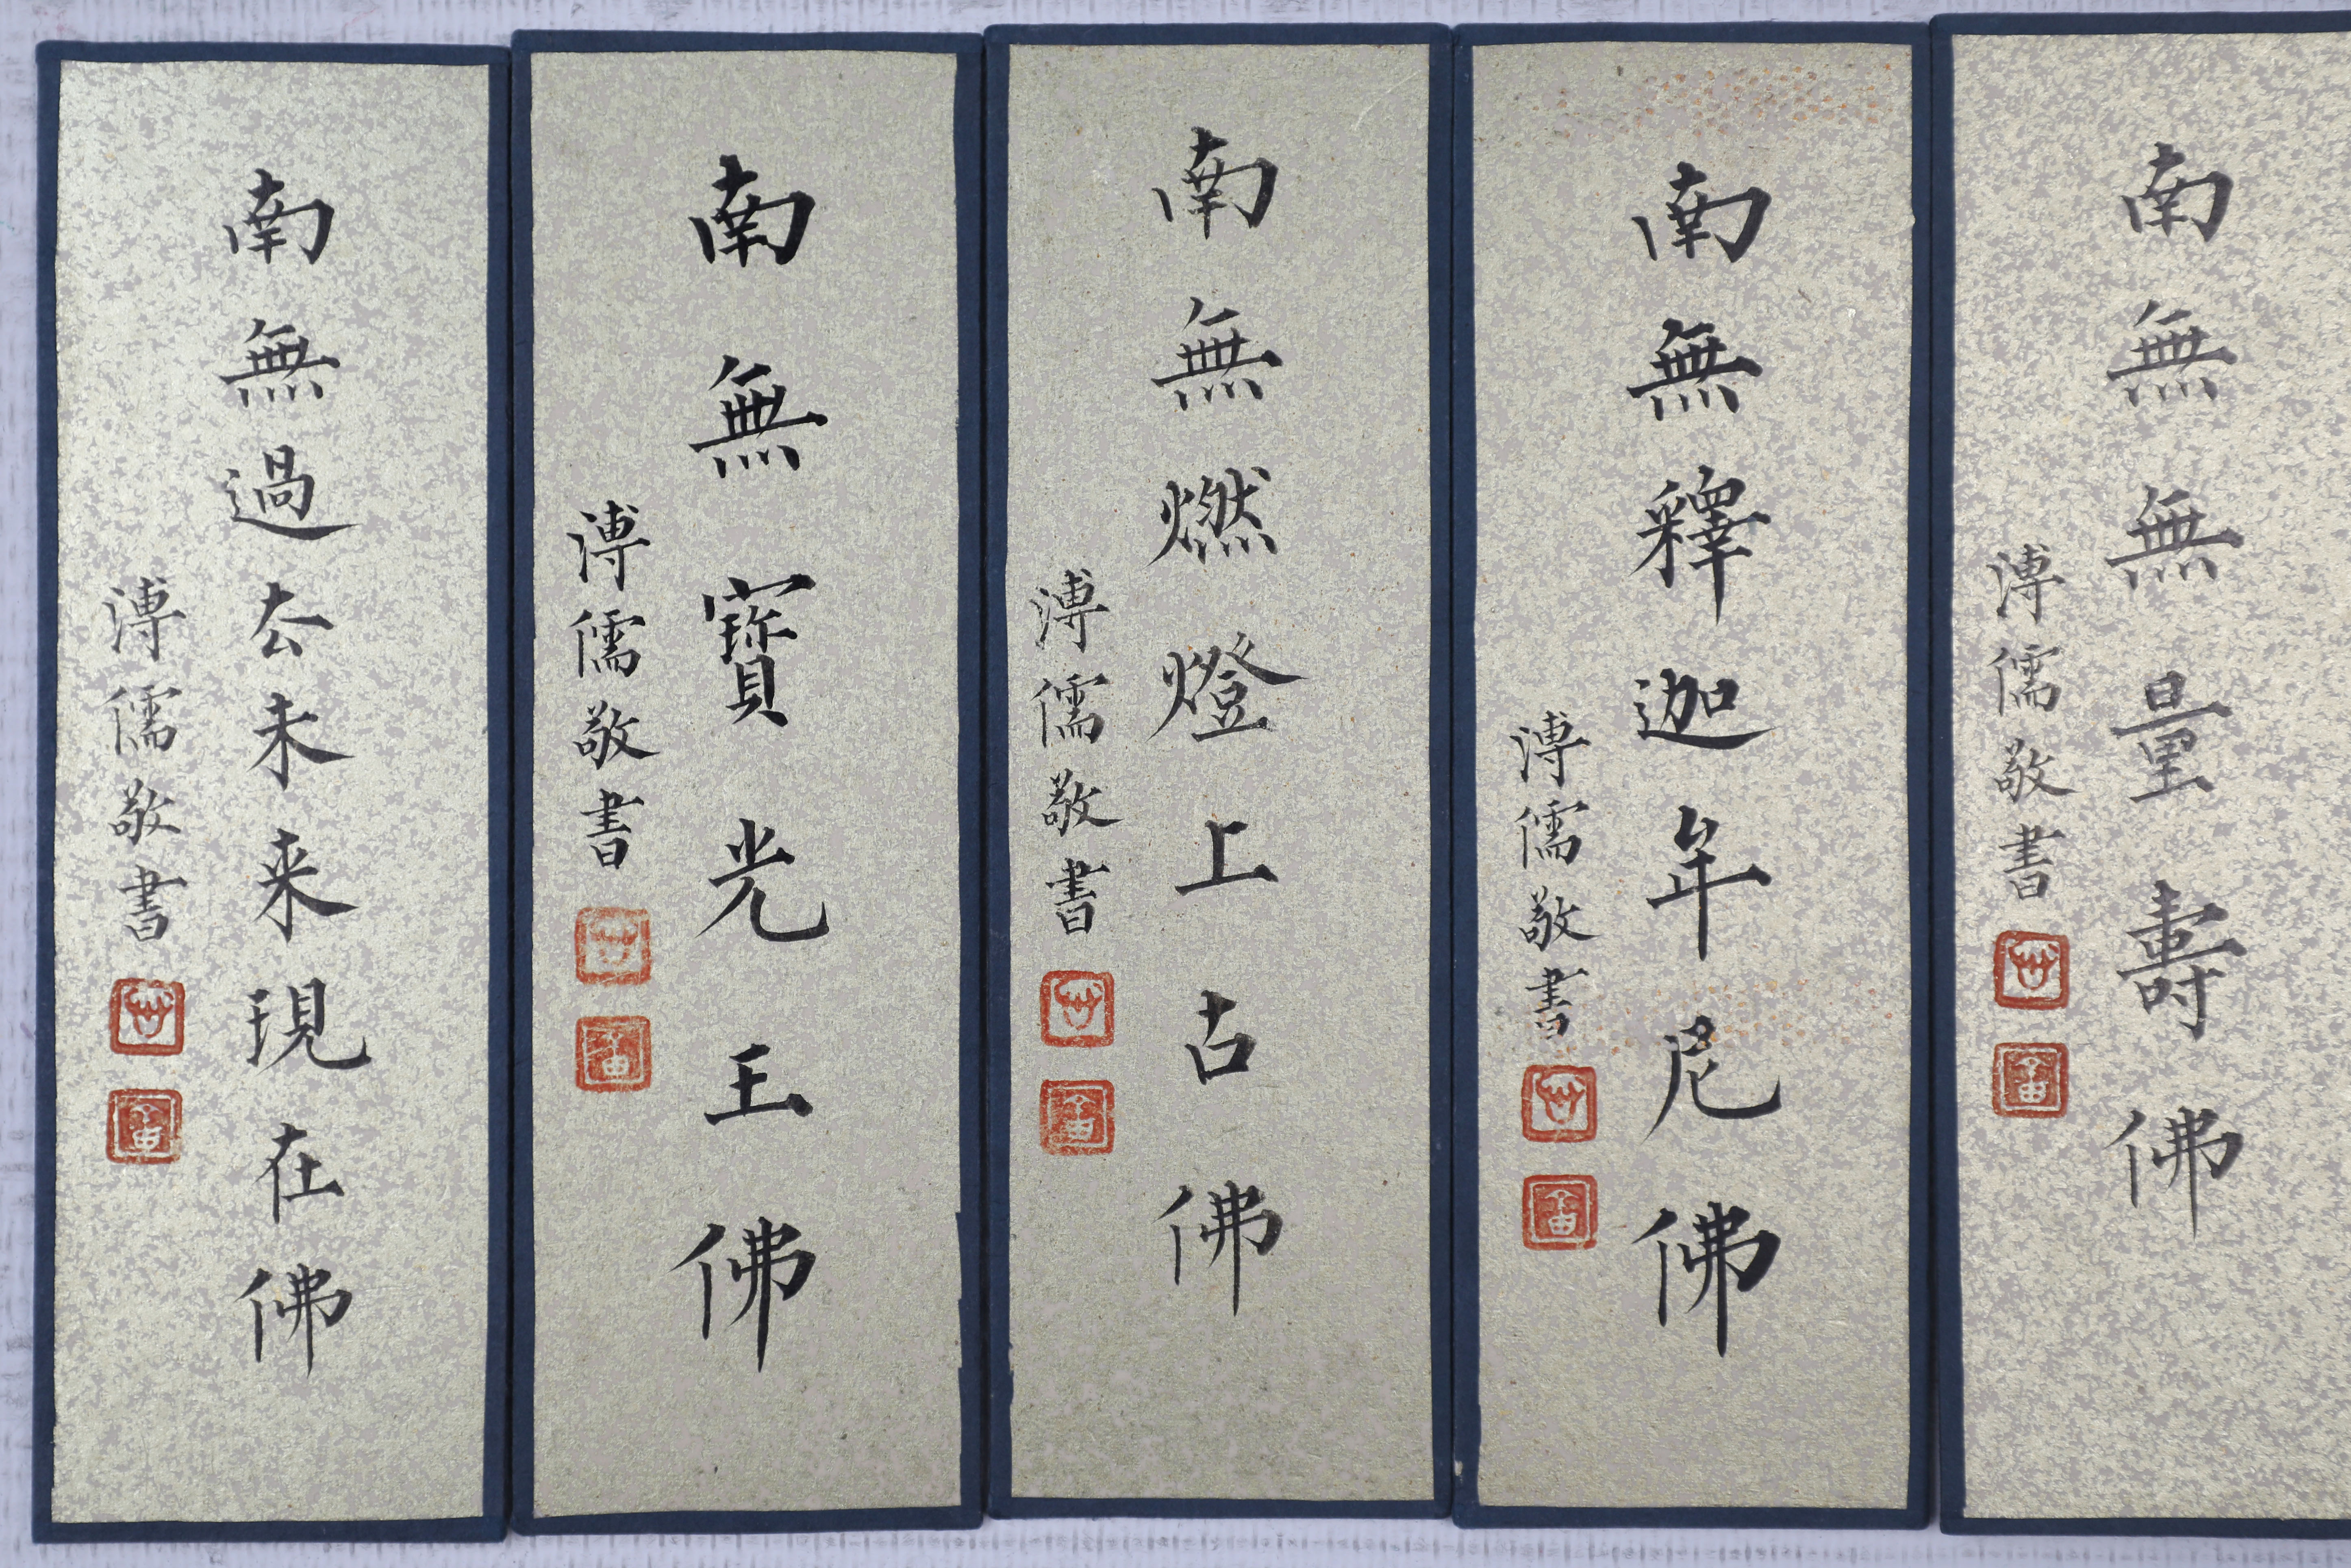 南無無量壽佛
溥儒敬書
南無釋迦牟尼佛
溥儒敬書
南無燃燈上古佛
溥儒敬書
南無寶光王佛
溥儒敬書
南無過去未來現在佛
溥儒敬書